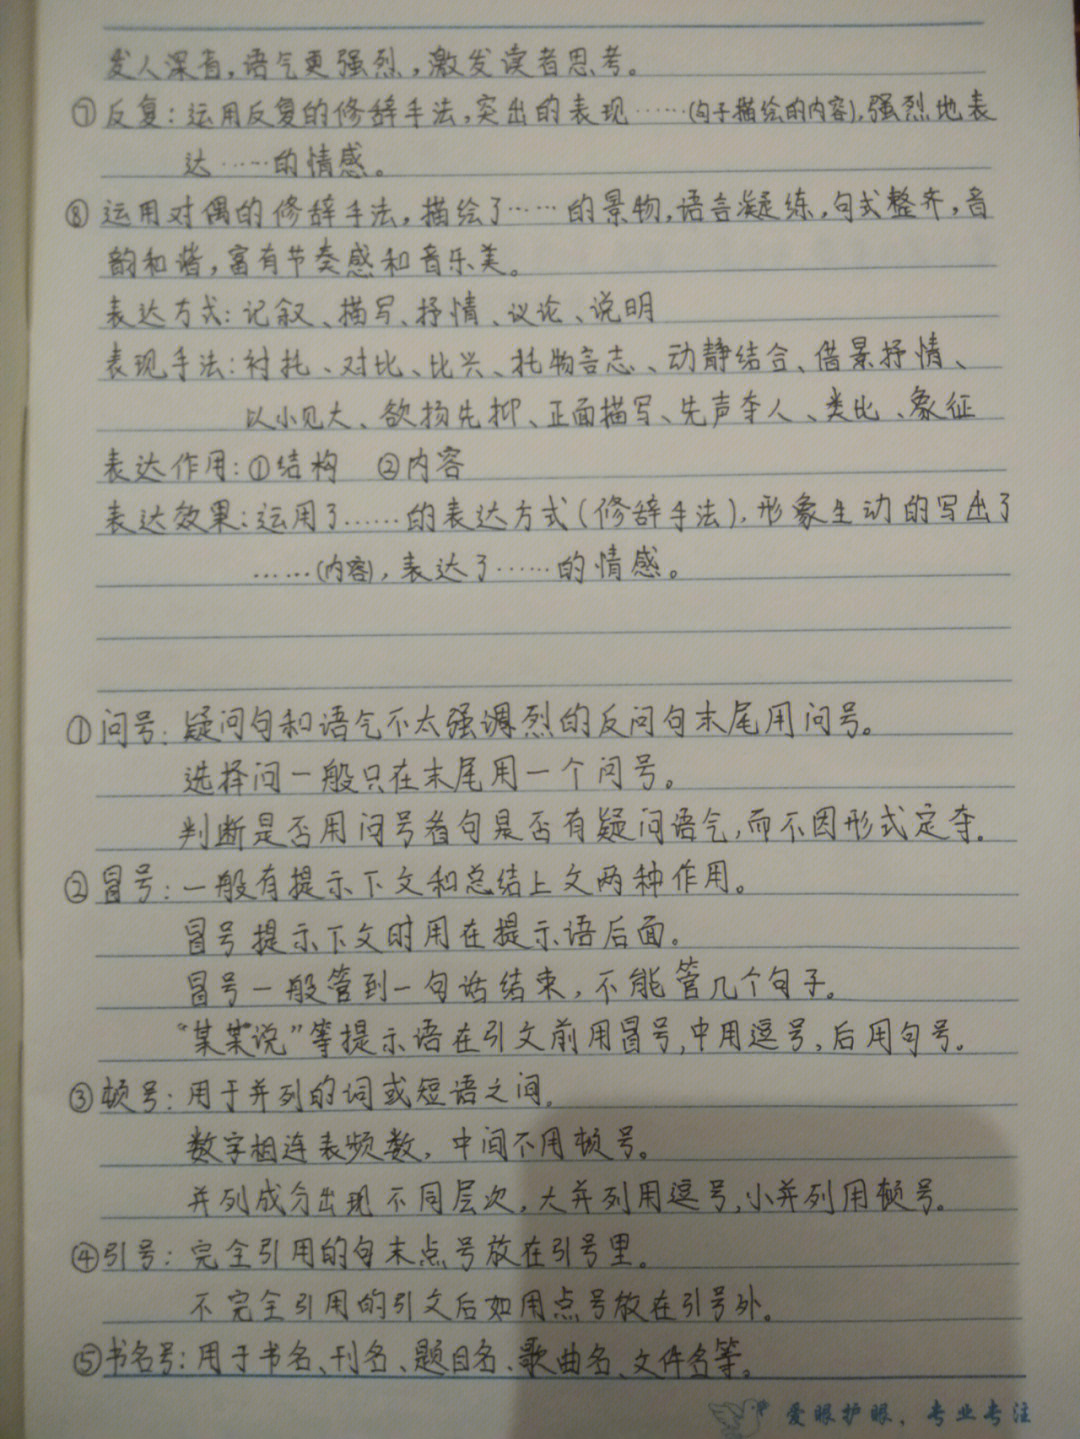 发人深省，语气更强烈，激发读者思考。
⑦反复：运用反复的修辞手法，突出的表现……(句子描绘的内容)，强烈地表
达……的情感。
⑧运用对偶的修辞手法，描绘了……的景物，语言凝练，句式整齐，音
韵和谐，富有节奏感和音乐美。
表达方式：记叙、描写、抒情、议论、说明
表现手法：衬托、对比、比兴、托物言志、动静结合、借景抒情、
以小见大、欲扬先抑、正面描写、先声夺人、类比、象征
表达作用：①结构 ②内容
表达效果：运用了……的表达方式(修辞手法)，形象生动的写出了
……(内容)，表达了……的情感。
①问号：疑问句和语气不太强调烈的反问句末尾用问号。
选择问一般只在末尾用一个问号。
判断是否用问号看句是否有疑问语气，而不因形式定夺。
②冒号：一般有提示下文和总结上文两种作用。
冒号提示下文时用在提示语后面。
冒号一般管到一句话结束，不能管几个句子。
“某某说”等提示语在引文前用冒号，中用逗号，后用句号。
③顿号：用于并列的词或短语之间。
数字相连表频数，中间不用顿号。
并列成分出现不同层次，大并列用逗号，小并列用顿号。
④引号：完全引用的句末点号放在引号里。
不完全引用的引文后如用点号放在引号外。
⑤书名号：用于书名、刊名、题目名、歌曲名、文件名等。
爱眼护眼，专业专注